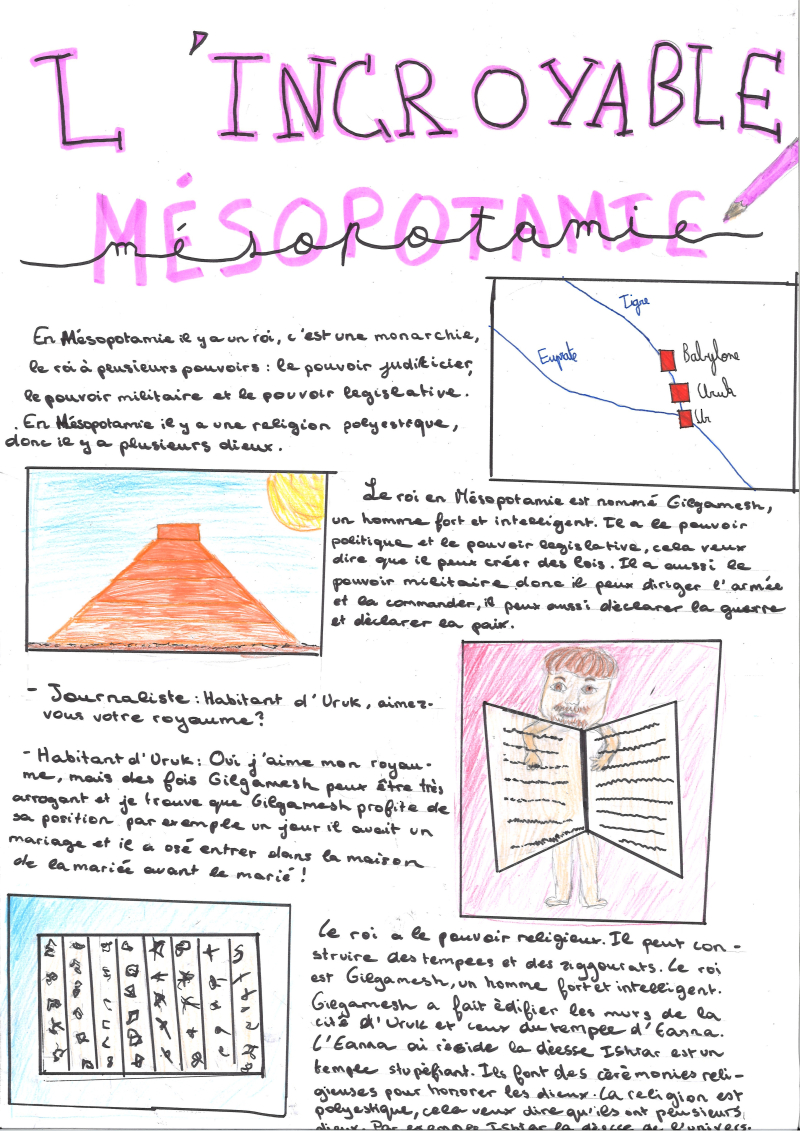 L'INCROYABLE
MÉSOPOTAMIE
mésopotamie
En Mésopotamie il y a un roi, c'est une monarchie,
le roi à plusieurs pouvoirs : le pouvoir judicicier,
le pouvoir militaire et le pouvoir legislative.
. En Mésopotamie il y a une religion polyestique,
donc il y a plusieurs dieux.
Tigre
Euprate
Babylone
Uruk
Ur
Le roi en Mésopotamie est nommé Gilgamesh,
un homme fort et intelligent. Il a le pouvoir
politique et le pouvoir legislative, cela veux
dire que il peux créer des lois. Il a aussi le
pouvoir militaire donc il peux diriger l'armée
et la commander, il peux aussi dèclarer la guerre
et dèclarer la paix.
- Journaliste : Habitant d'Uruk, aimez-
vous votre royaume ?
- Habitant d'Uruk : Oui j'aime mon royau-
me, mais des fois Gilgamesh peux être très
arrogant et je trouve que Gilgamesh profite de
sa position par exemple un jour il avait un
mariage et il a osé entrer dans la maison
de la mariée avant le marié !
Le roi a le pouvoir religieux. Il peut con-
struire des temples et des ziggourats. Le roi
est Gilgamesh, un homme fort et intelligent.
Gilgamesh a fait èdifier les murs de la
cité d'Uruk et ceux du temple d'Eanna.
L'Eanna où rèside la dèesse Ishtar est un
temple stupèfiant. Ils font des cèrèmonies reli-
gieuses pour honorer les dieux. La religion est
polyestique, cela veux dire qu'ils ont plusieurs
dieux. Par exemple Ishtar la dèesse de l'univers.